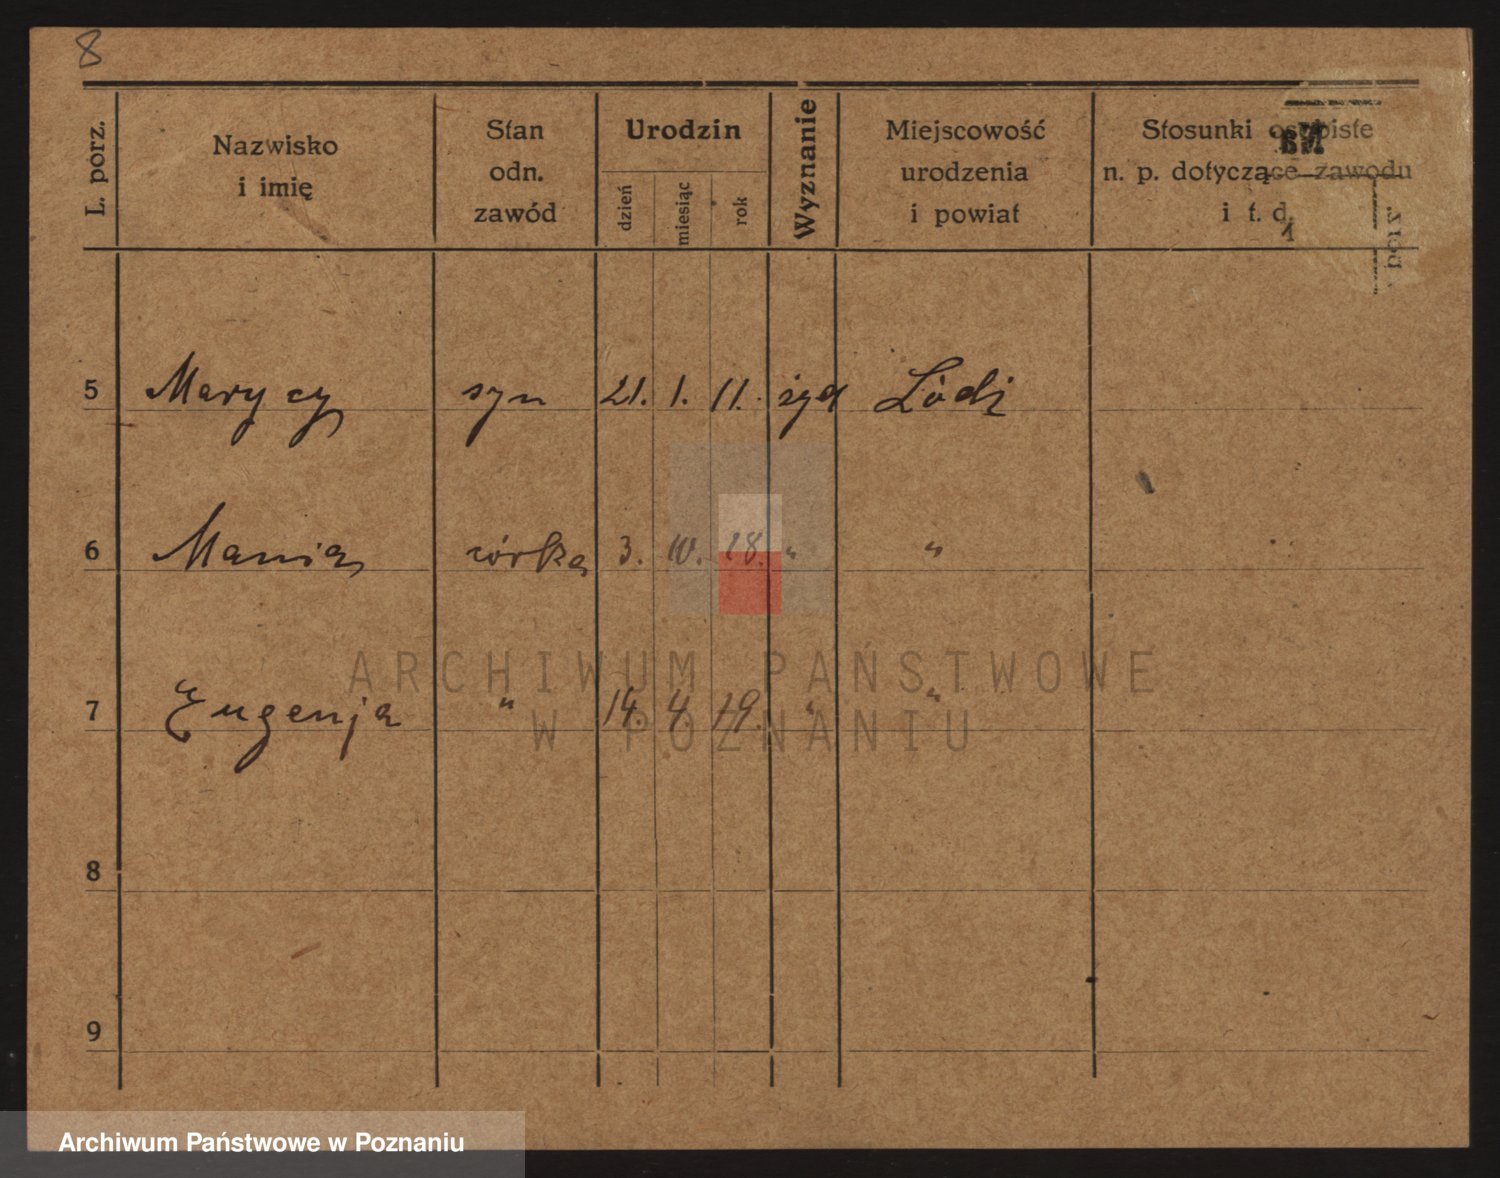 8
L. porz.
Nazwisko
i imię
Stan
odn.
zawód
Urodzin
dzień
miesiąc
rok
Wyznanie
Miejscowość
urodzenia
i powiat
Stosunki osobiste
n. p. dotyczące zawodu
i t. d.
5 Marycy syn 21. 1. 11. żyd Łódź
6 Mania córka 3. 10. 18. " "
7 Eugenja " 14. 4. 19. " "
8
9
ARCHIWUM PAŃSTWOWE
W POZNANIU
Archiwum Państwowe w Poznaniu